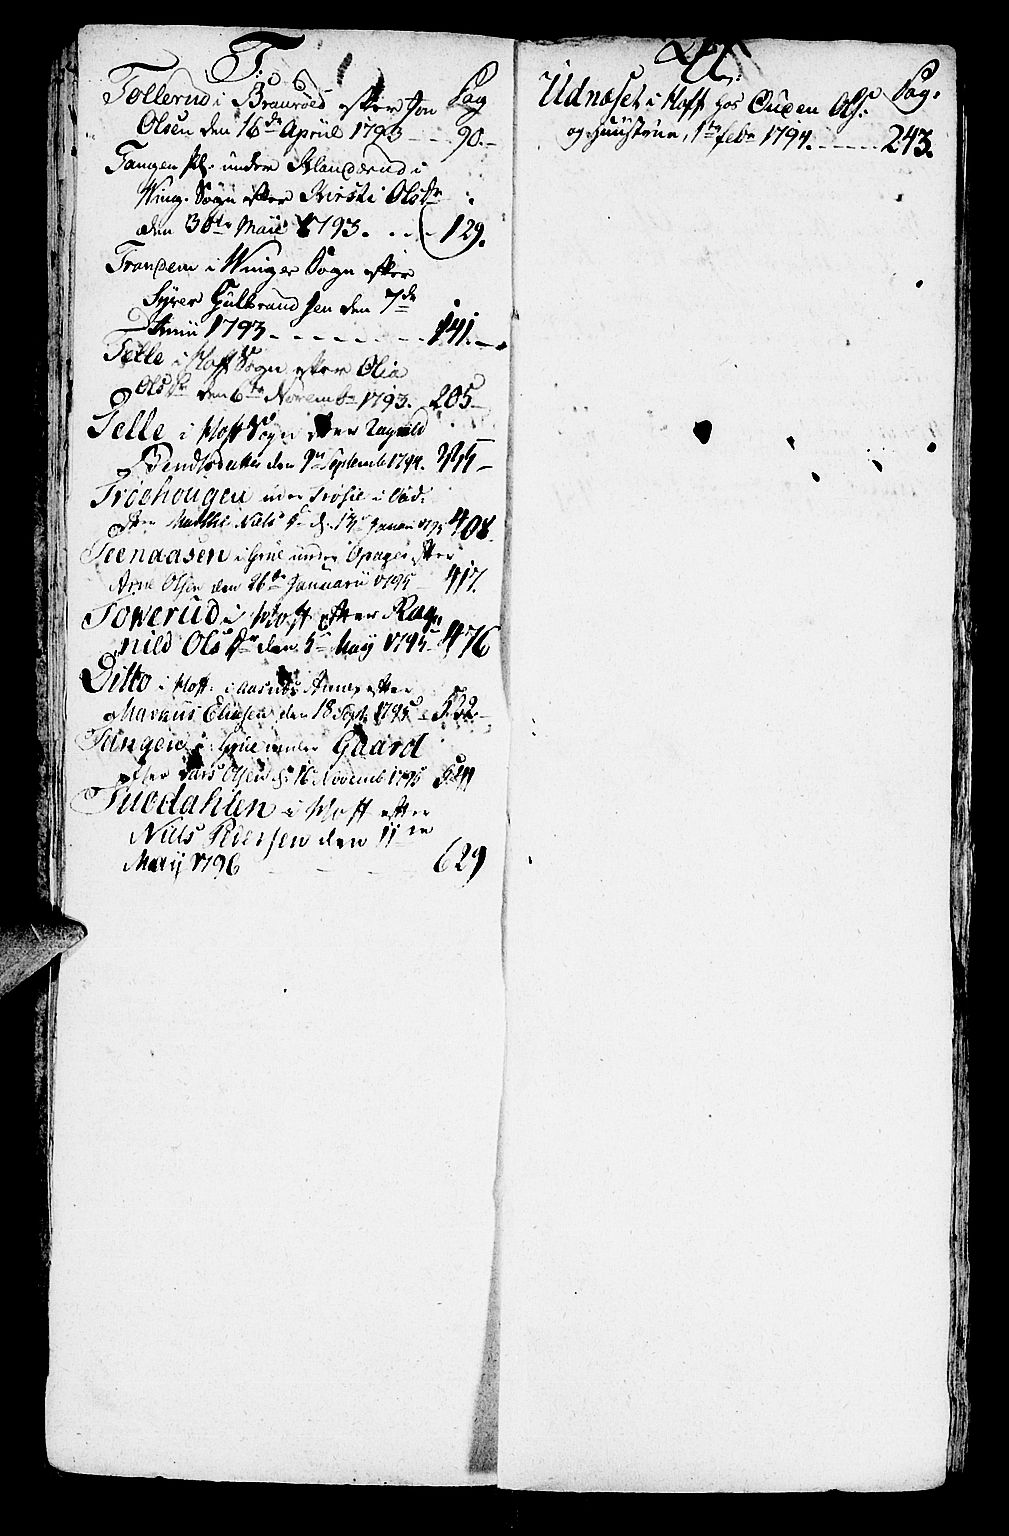 T:
Pag
Tollerud i Branvold efter Jon
Olsen den 16de Aprül 1793 - - 90.-
Tangen Pl. under i
Wing. Sogn efter Kirsti Olsdr
den 30te Maii 1793. - - - 129.
Trandem i Winger Sogn efter
Syver Gulbrandsen den 7de
Junii 1793 - - - - - - 141.-
Telle i Hoff Sogn efter Olia
Olsdr den 6te Novembr 1793. 205-
Telle i Hoff Sogn efter Ragnild
den 9de Septemb 1794.
Tröehougen under i
efter Nielsdr d. 13 Januari 1795 408.
i Grue under Opager efter
Arne Olsen den 26de Januarii 1795 417.
Towerud i Hoff efter Rag-
nild Olsdr den 5te May 1795 476
Ditto i Hoff. i Aasnes Annex efter
Marcus Eliesen den 18 Sept. 1795 - 532-
Tangen i Grue under Gaard
efter Lars Olsen d. 16 Novemb 1795
i Hoff efter
Niels Pedersen den 11te
Maij 1796 - - - 629
U:
Pag.
Udnæset i Hoff hos Ols:
og Huustrue, 1te febr 1794. - - - - 243.